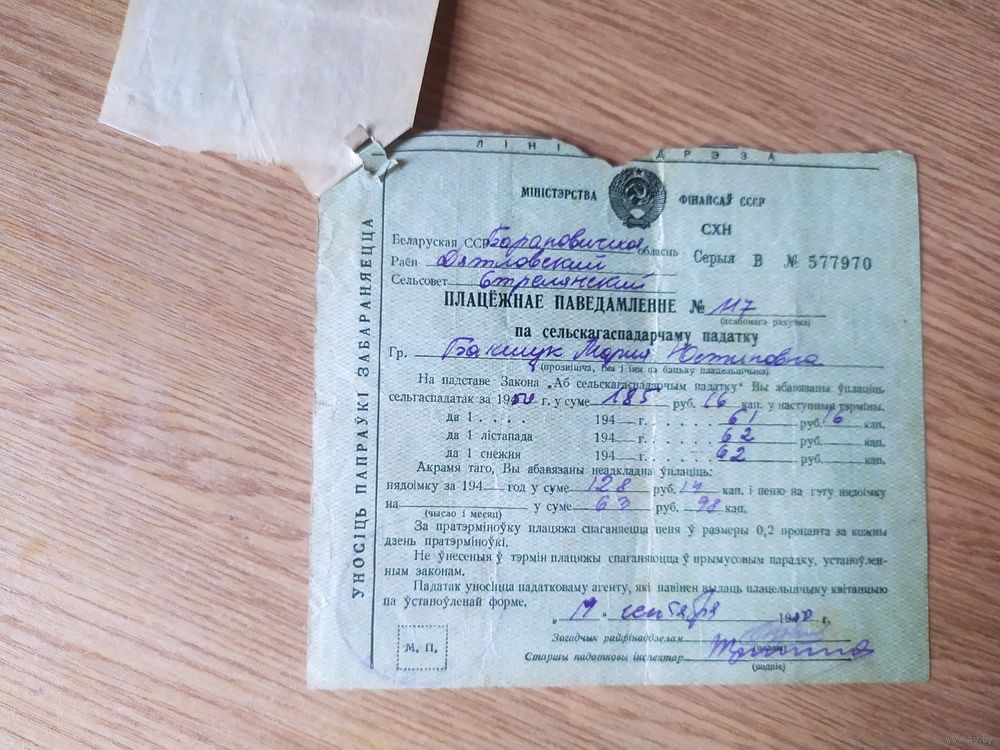 ЛІНІ ДРЭЗА
МІНІСТЭРСТВА ФІНАНСАЎ СССР
СХН
Беларуская ССР Барановичская обласць
Серыя В № 577970
Раён Дятловский
Сельсовет Стрелянский
ПЛАЦЁЖНАЕ ПАВЕДАМЛЕННЕ № 117
(асабовага рахунка)
па сельскагаспадарчаму падатку
Гр. Бакшук Мария Юстиновна
(прозвішча, імя і імя па бацьку плацельшчыка)
На падставе Закона „Аб сельскагаспадарчым падатку“ Вы абавязаны ўплаціць
сельгаспадатак за 1950 г. у суме 185 руб. 16 кап. у наступныя тэрміны.
да 1 . . . . 194 г. . . . . . 61 руб. 16 кап.
да 1 лістапада 194 г. . . . . . 62 руб. кап.
да 1 снежня 194 г. . . . . . 62 руб. кап.
Акрамя таго, Вы абавязаны неадкладна ўплаціць:
нядоімку за 194 год у суме 128 руб. 14 кап. і пеню на гэту нядоімку
на у суме 63 руб. 98 кап.
(чысло і месяц)
За пратэрміноўку плацяжа спаганяецца пеня ў размеры 0,2 процанта за кожны
дзень пратэрміноўкі.
Не ўнесеныя ў тэрмін плацяжы спаганяюцца ў прымусовым парадку, устаноўлен-
ным законам.
Падатак уносіцца падатковаму агенту, які павінен выдаць плацельшчыку квітанцыю
па ўстаноўленай форме.
„19 сентября 1950 г.
Загадчык райфінаддзелам
(подпіс)
Старшы падатковы інспектар
(подпіс)
М. П.
УНОСІЦЬ ПАПРАЎКІ ЗАБАРАНЯЕЦЦА
www.ay.by